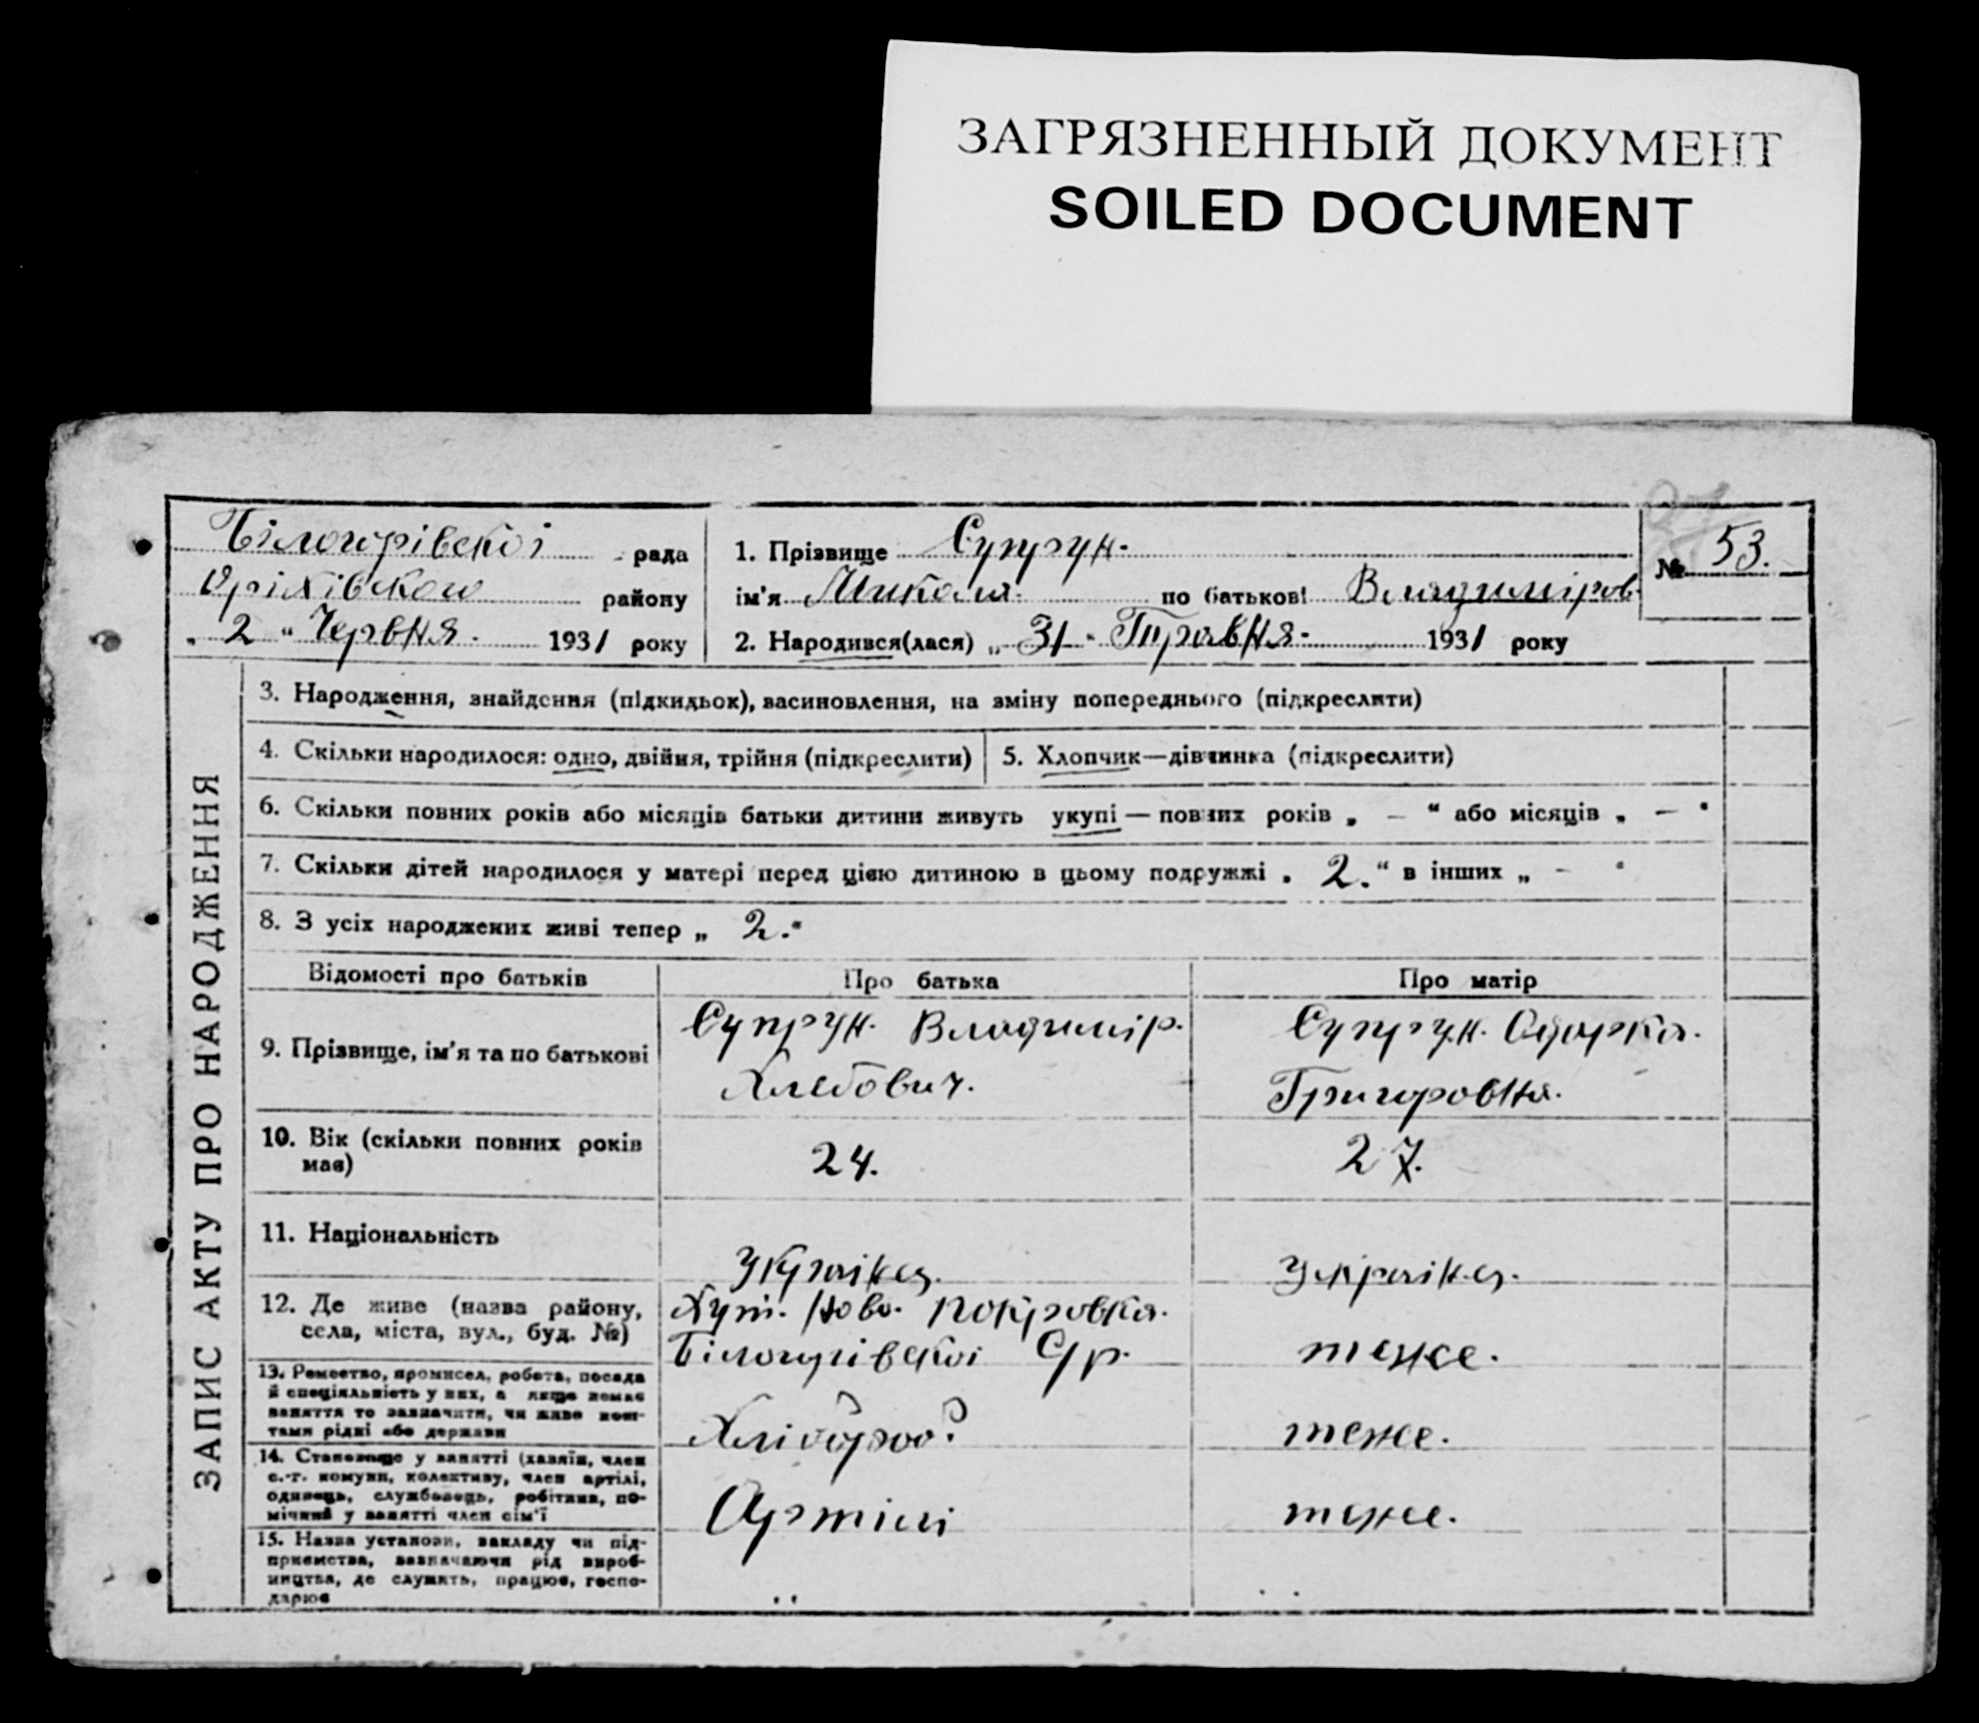 ЗАГРЯЗНЕННЫЙ ДОКУМЕНТ
SOILED DOCUMENT
Білогорівської рада
Оріхівского району
„ 2 “ Червня. 1931 року
1. Прізвище Супрун.
ім'я Микола. по батькові Владимиров.
2. Народився(лася) „ 31 “ Травня. 1931 року
№ 53.
ЗАПИС АКТУ ПРО НАРОДЖЕННЯ
3. Народження, знайдення (підкидьок), васиновлення, на зміну попереднього (підкреслити)
4. Скільки народилося: одно, двійня, трійня (підкреслити)
5. Хлопчик—дівчинка (підкреслити)
6. Скільки повних років або місяців батьки дитини живуть укупі — повних років „ — “ або місяців „ — “
7. Скільки дітей народилося у матері перед цією дитиною в цьому подружжі „ 2. “ в інших „ — “
8. З усіх народжених живі тепер „ 2. “
Відомості про батьків
Про батька
Про матір
9. Прізвище, ім'я та по батькові
Супрун. Владимір.
Хлебович.
Супрун. Одарка.
Григоровна.
10. Вік (скільки повних років
має)
24.
27.
11. Національність
Україн.
Україн.
12. Де живе (назва району,
села, міста, вул., буд. №)
Хут. Ново. Покровка.
Білогорівскої С/р.
теже.
13. Ремество, промисел, робота, посада
й спеціяльність у них, а якщо немає
заняття то зазначити, чи живе кош-
тами рідні або держави
Хлібороб.
теже.
14. Становище у занятті (хазяїн, член
с.-г. комуни, колективу, член артілі,
одинець, службовець, робітник, по-
мічний у занятті член сім'ї
Артілі
теже.
15. Назва установи, закладу чи під-
приємства, зазначаючи рід вироб-
ництва, де служить, працює, госпо-
дарює